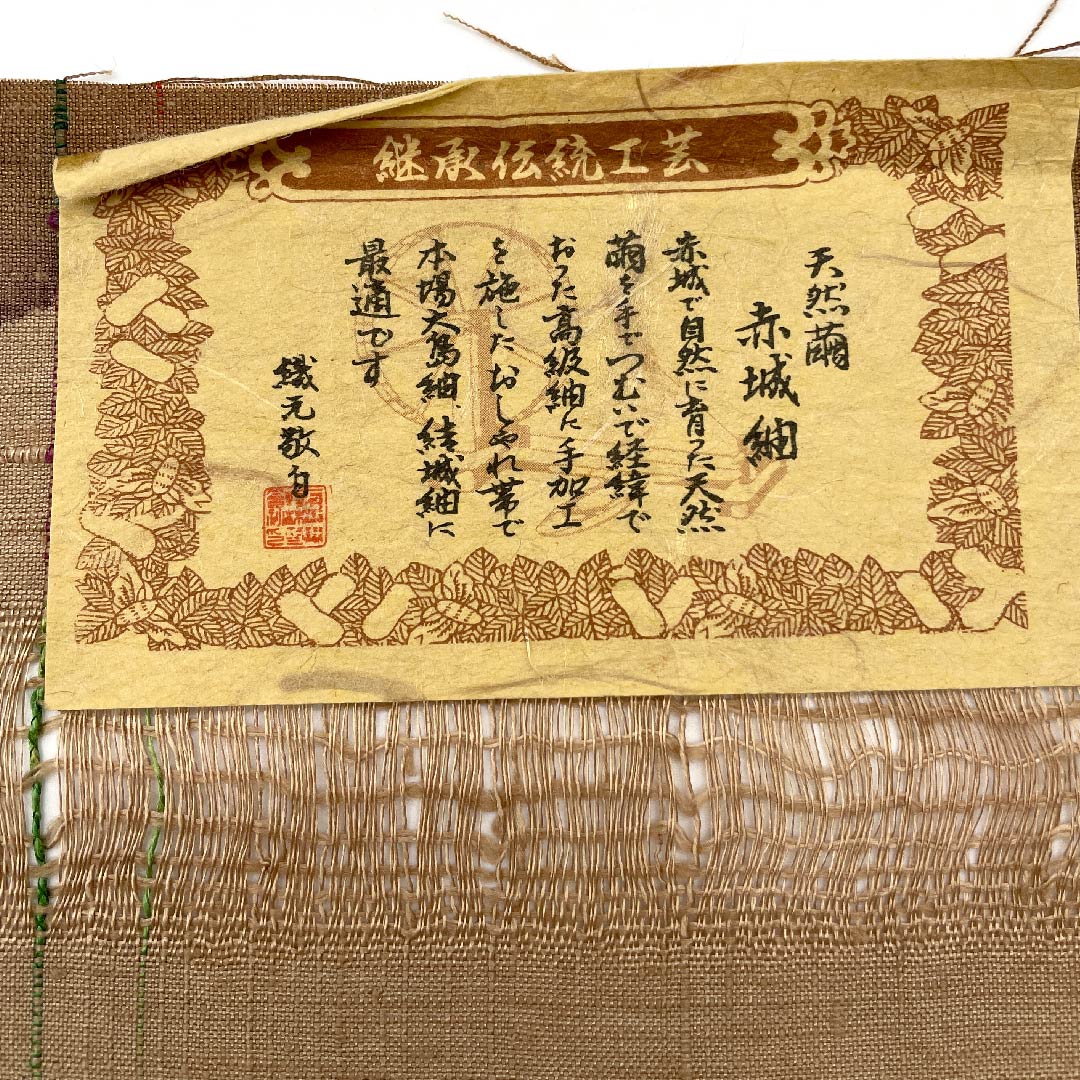 継承伝統工芸
天然繭
赤城紬
赤城で自然に育った天然
繭を手でつむいで経緯で
おった高級紬に手加工
を施したおしゃれ帯で
本場大島紬、結城紬に
最適です
織元敬白